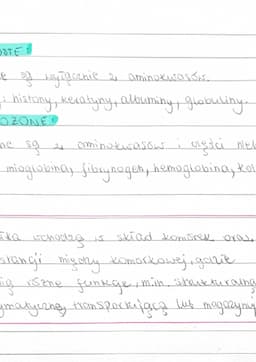 OSTE
są wyłącznie z aminokwasów.
: histony, keratyny, albuminy, globuliny.
OZONE
ne są z aminokwasów i części nie
mioglobina, fibrynogen, hemoglobina, kol
ka wchodzą w skład komórek oraz
stancji między komórkowej, gdzie
ią różne funkcje, m.in. strukturalną
ymatyczną, transportującą lub magazynu